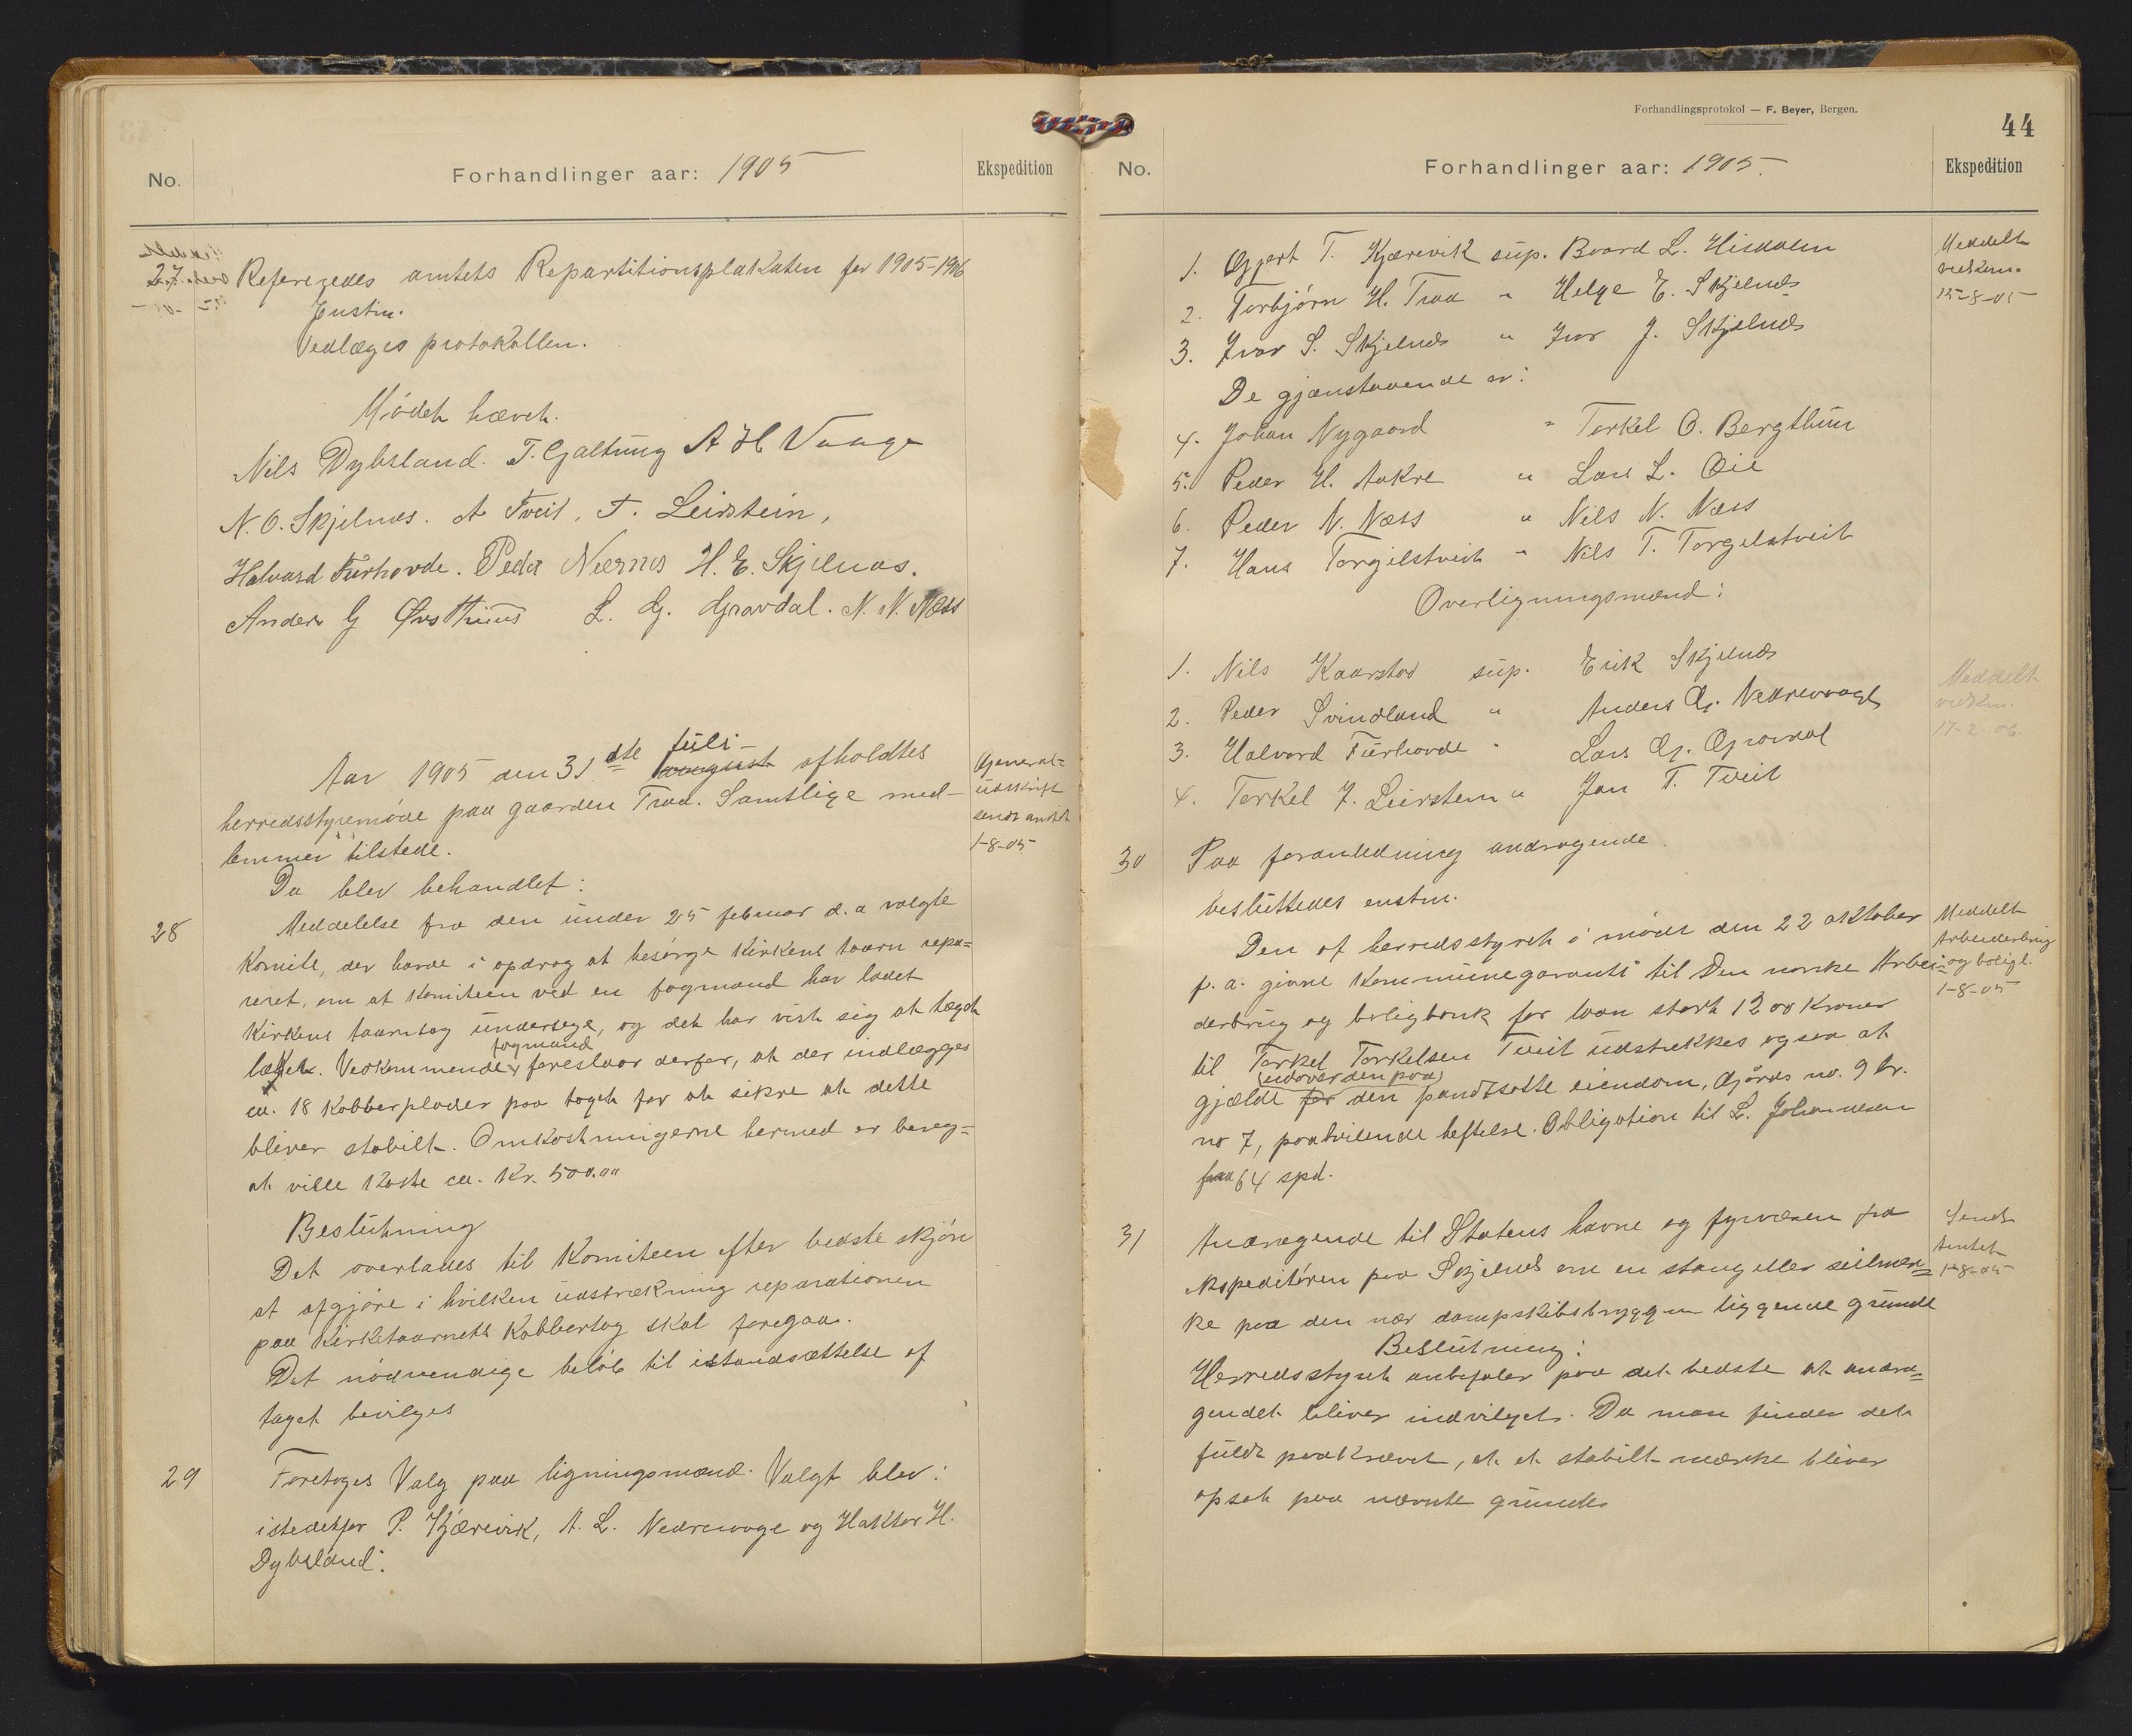 No.
Forhandlinger aar: 1905
Ekspedition
27. Refereredes amtets Repartitionsplakaten for 1905-1906
Enstm.
Vedlæges protokollen.
Mödet hævet.
Nils Dybsland. T. Galtung A H Vaage
N. O. Skjelnæs. A Tveit, T. Leirstein,
Halvard Furhovde. Peder Nernes H. E. Skjelnæs.
Anders G Øvsthuus L. G. Gravdal. N. N. Næss
Aar 1905 den 31 dte august juli afholdtes
herredsstyremöde paa gaarden Traa. Samtlige med-
lemmer tilstede.
General-
udskrift
sendt amtet
1-8-05
Da blev behandlet:
28 Meddelelse fra den under 25 februar d. a valgte
Komite, der havde i opdrag at besörge Kirkens taarn repa=
reret, om at Komiteen ved en fagmand har ladet
Kirkens taarntag undersøge, og det har vist sig at taget
lækker. Vedkommende fagmand foreslaar derfor, at der indlægges
ca. 18 Kobberplader paa taget for at sikre at dette
bliver stabilt. Omkostningerne hermed er bereg=
at ville koste ca. Kr. 500.00
Beslutning
Det overlades til Komiteen efter bedste skjön
at afgjöre i hvilken udstrækning reparationen
paa Kirketaarnets Kobbertag skal foregaa.
Det nödvendige belöb til istandsættelse af
taget bevilges
29 Foretoges Valg paa ligningsmænd. Valgt blev:
istedetfor P. Kjærevik, A. L. Nedrevaage og Haktor H.
Dybsland:
Forhandlingsprotokol — F. Beyer, Bergen.
44
No.
Forhandlinger aar: 1905.
Ekspedition
1. Gjert T. Kjærevik sup. Baard L. Hisdalen
2. Torbjörn H. Traa " Helge E. Skjelnæs
3. Ivar S. Skjelnæs " Ivar J. Skjelnæs
Meddelt
vedkom.
15-8-05
De gjenstaaende er:
4. Johan Nygaard " Torkel O. Bergthun
5. Peder H. Aakre " Lars L. Øie
6. Peder N. Næss " Nils N. Næss
7. Hans Torgilstveit " Nils T. Torgelstveit
Overligningsmænd:
1. Nils Kaarstad sup. Erik Skjelnæs
2. Peder Svindland " Anders G. Nedrevaage
3. Halvard Furhovde " Lars G. Gravdal
4. Torkel J. Leirstein " Jan T. Tveit
Meddelt
vedkm.
17-2 06
30 Paa foranledning andragende
besluttedes enstm.
Den af herredsstyret i möde den 22 oktober
f. a. givne Kommunegaranti til Den norske Arbei=
derbrug og boligbank for laan stort 1200 Kroner
til Torkel Torkelsen Tveit udstrekkes ogsaa at
gjælde for (udover den paa) den pandtsatte eiendom, Gaards no. 9 br.
no 7, paahvilende heftelse. Obligation til L. Johannesen
paa 64 spd.
Meddelt
Arbeiderbrug
og boligb.
1-8-05
31 Andragende til Statens havne og fyrvæsen fra
ekspeditören paa Skjelnæs om en stang eller seilmær=
ke paa den nær dampskibsbryggen liggende grunde
Sendt
Amtet
1-8-05
Beslutning:
Herredsstyret anbefaler paa det bedste at andra=
gendet bliver indvilget. Da man finder det
fuldt paakrævet, at et stabilt mærke bliver
opsat paa nævnte grunde